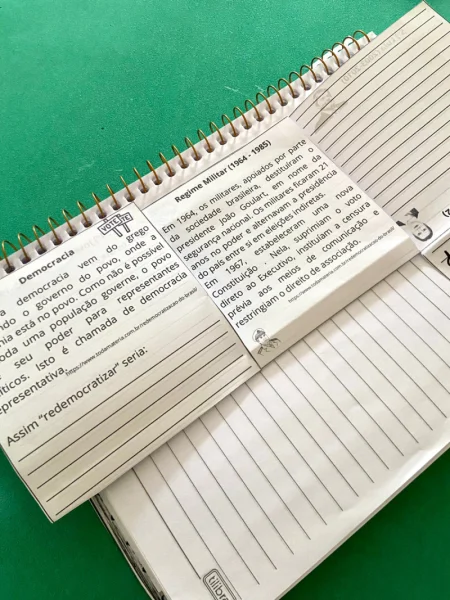 VOTE
Democracia
a democracia vem do grego
o governo do povo, onde a
nia está no povo. Como não é possível
oda uma população governe, o povo
seu poder para representantes
íticos. Isto é chamada de democracia
epresentativa.
https://www.todamateria.com.br/redemocratizacao-do-brasil
Assim "redemocratizar" seria:
Regime Militar (1964 - 1985)
Em 1964, os militares, apoiados por parte
da sociedade brasileira, destituíram o
presidente João Goulart, em nome da
segurança nacional. Os militares ficaram 21
anos no poder e alternavam a presidência
do país entre si em eleições indiretas.
Em 1967, estabeleceram uma nova
Constituição. Nela, suprimiam o voto
direto ao Executivo, instituíam a censura
prévia aos meios de comunicação e
restringiam o direito de associação.
https://www.todamateria.com.br/redemocratizacao-do-brasil
tilibra